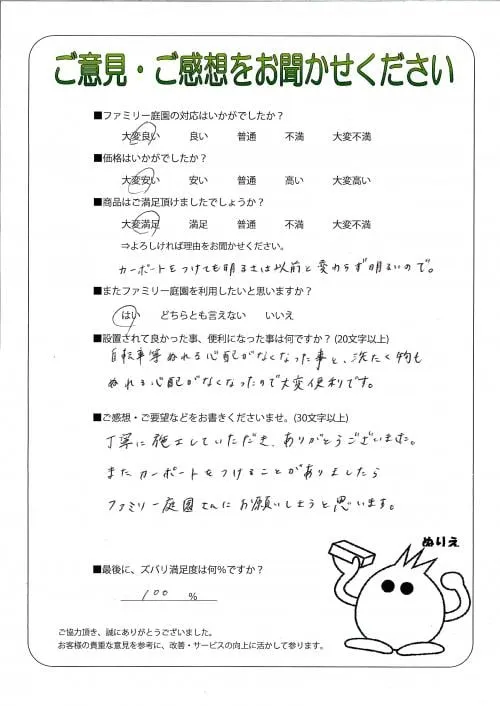 ご意見・ご感想をお聞かせください
■ファミリー庭園の対応はいかがでしたか？
大変良い 良い 普通 不満 大変不満
■価格はいかがでしたか？
大変安い 安い 普通 高い 大変高い
■商品はご満足頂けましたでしょうか？
大変満足 満足 普通 不満 大変不満
⇒よろしければ理由をお聞かせください。
カーポートをつけても明るさは以前と変わらず明るいので。
■またファミリー庭園を利用したいと思いますか？
はい どちらとも言えない いいえ
■設置されて良かった事、便利になった事は何ですか？(20文字以上)
自転車等ぬれる心配がなくなった事と、洗たく物も
ぬれる心配がなくなったので大変便利です。
■ご感想・ご要望などをお書きくださいませ。(30文字以上)
丁寧に施工していただき、ありがとうございました。
またカーポートをつけることがありましたら
ファミリー庭園さんにお願いしようと思います。
ぬりえ
■最後に、ズバリ満足度は何％ですか？
100 %
ご協力頂き、誠にありがとうございました。
お客様の貴重な意見を参考に、改善・サービスの向上に活かして参ります。